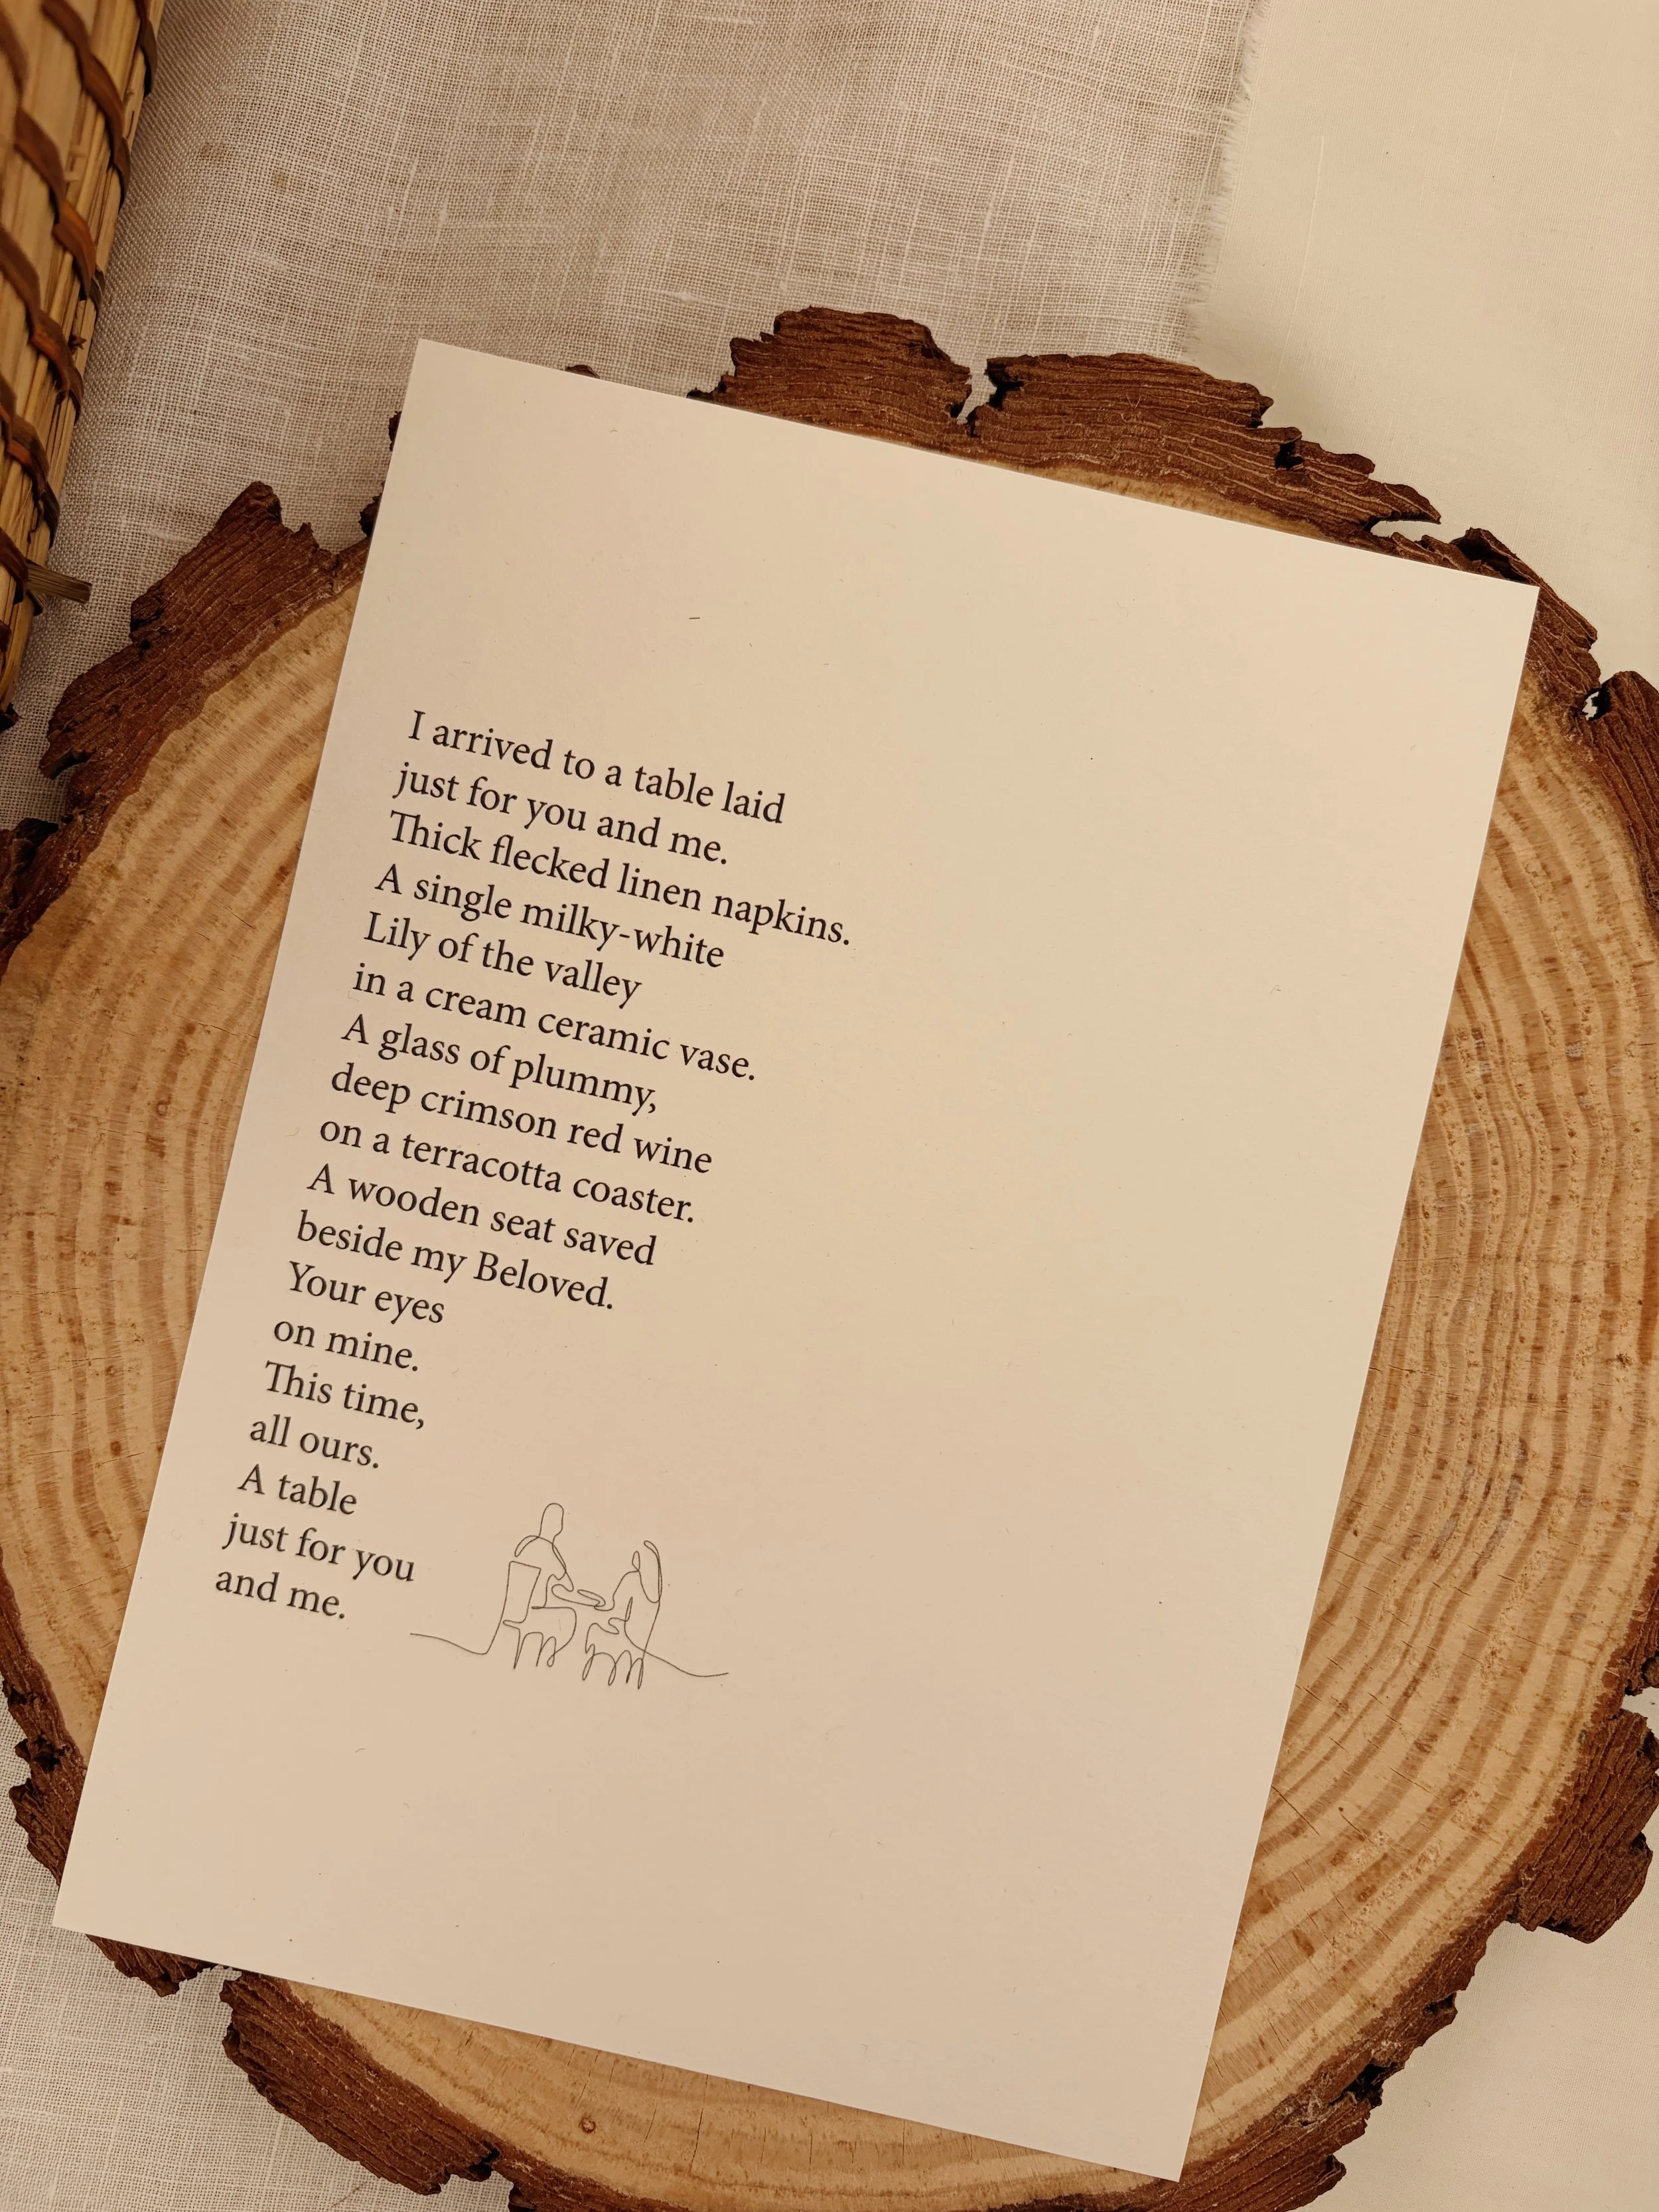 I arrived to a table laid
just for you and me.
Thick flecked linen napkins.
A single milky-white
Lily of the valley
in a cream ceramic vase.
A glass of plummy,
deep crimson red wine
on a terracotta coaster.
A wooden seat saved
beside my Beloved.
Your eyes
on mine.
This time,
all ours.
A table
just for you
and me.